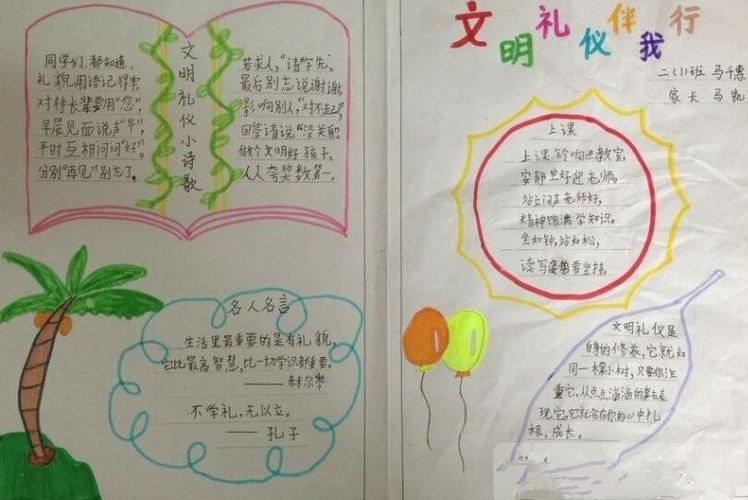 文明礼仪小诗歌
同学们,都知道,
礼貌用语记得牢
对待长辈要用"您",
早晨见面说声"早",
平时互相问问"好"。
分别"再见"别忘了。
若求人,"请"字先,
最后别忘说谢谢
影响别人,"对不起",
回答请说"没关系"
做个文明好孩子,
人人夸奖数第一。
名人名言
生活里最重要的是有礼貌,
它比最高智慧,比一切学识都重要。
——赫尔岑
不学礼,无以立。
——孔子
文明礼仪伴我行
二(1)班 马千惠
家长 马凯
上课
上课铃响进教室,
安静坐好迎老师。
站立问声老师好,
精神饱满学知识。
坐如钟,站如松,
读写姿势要坚持。
文明礼仪是
自身的修养,它就如
同一棵小树,只要你注
重它,从点点滴滴的事去表
现它,它就会在你的心中扎
根,成长。